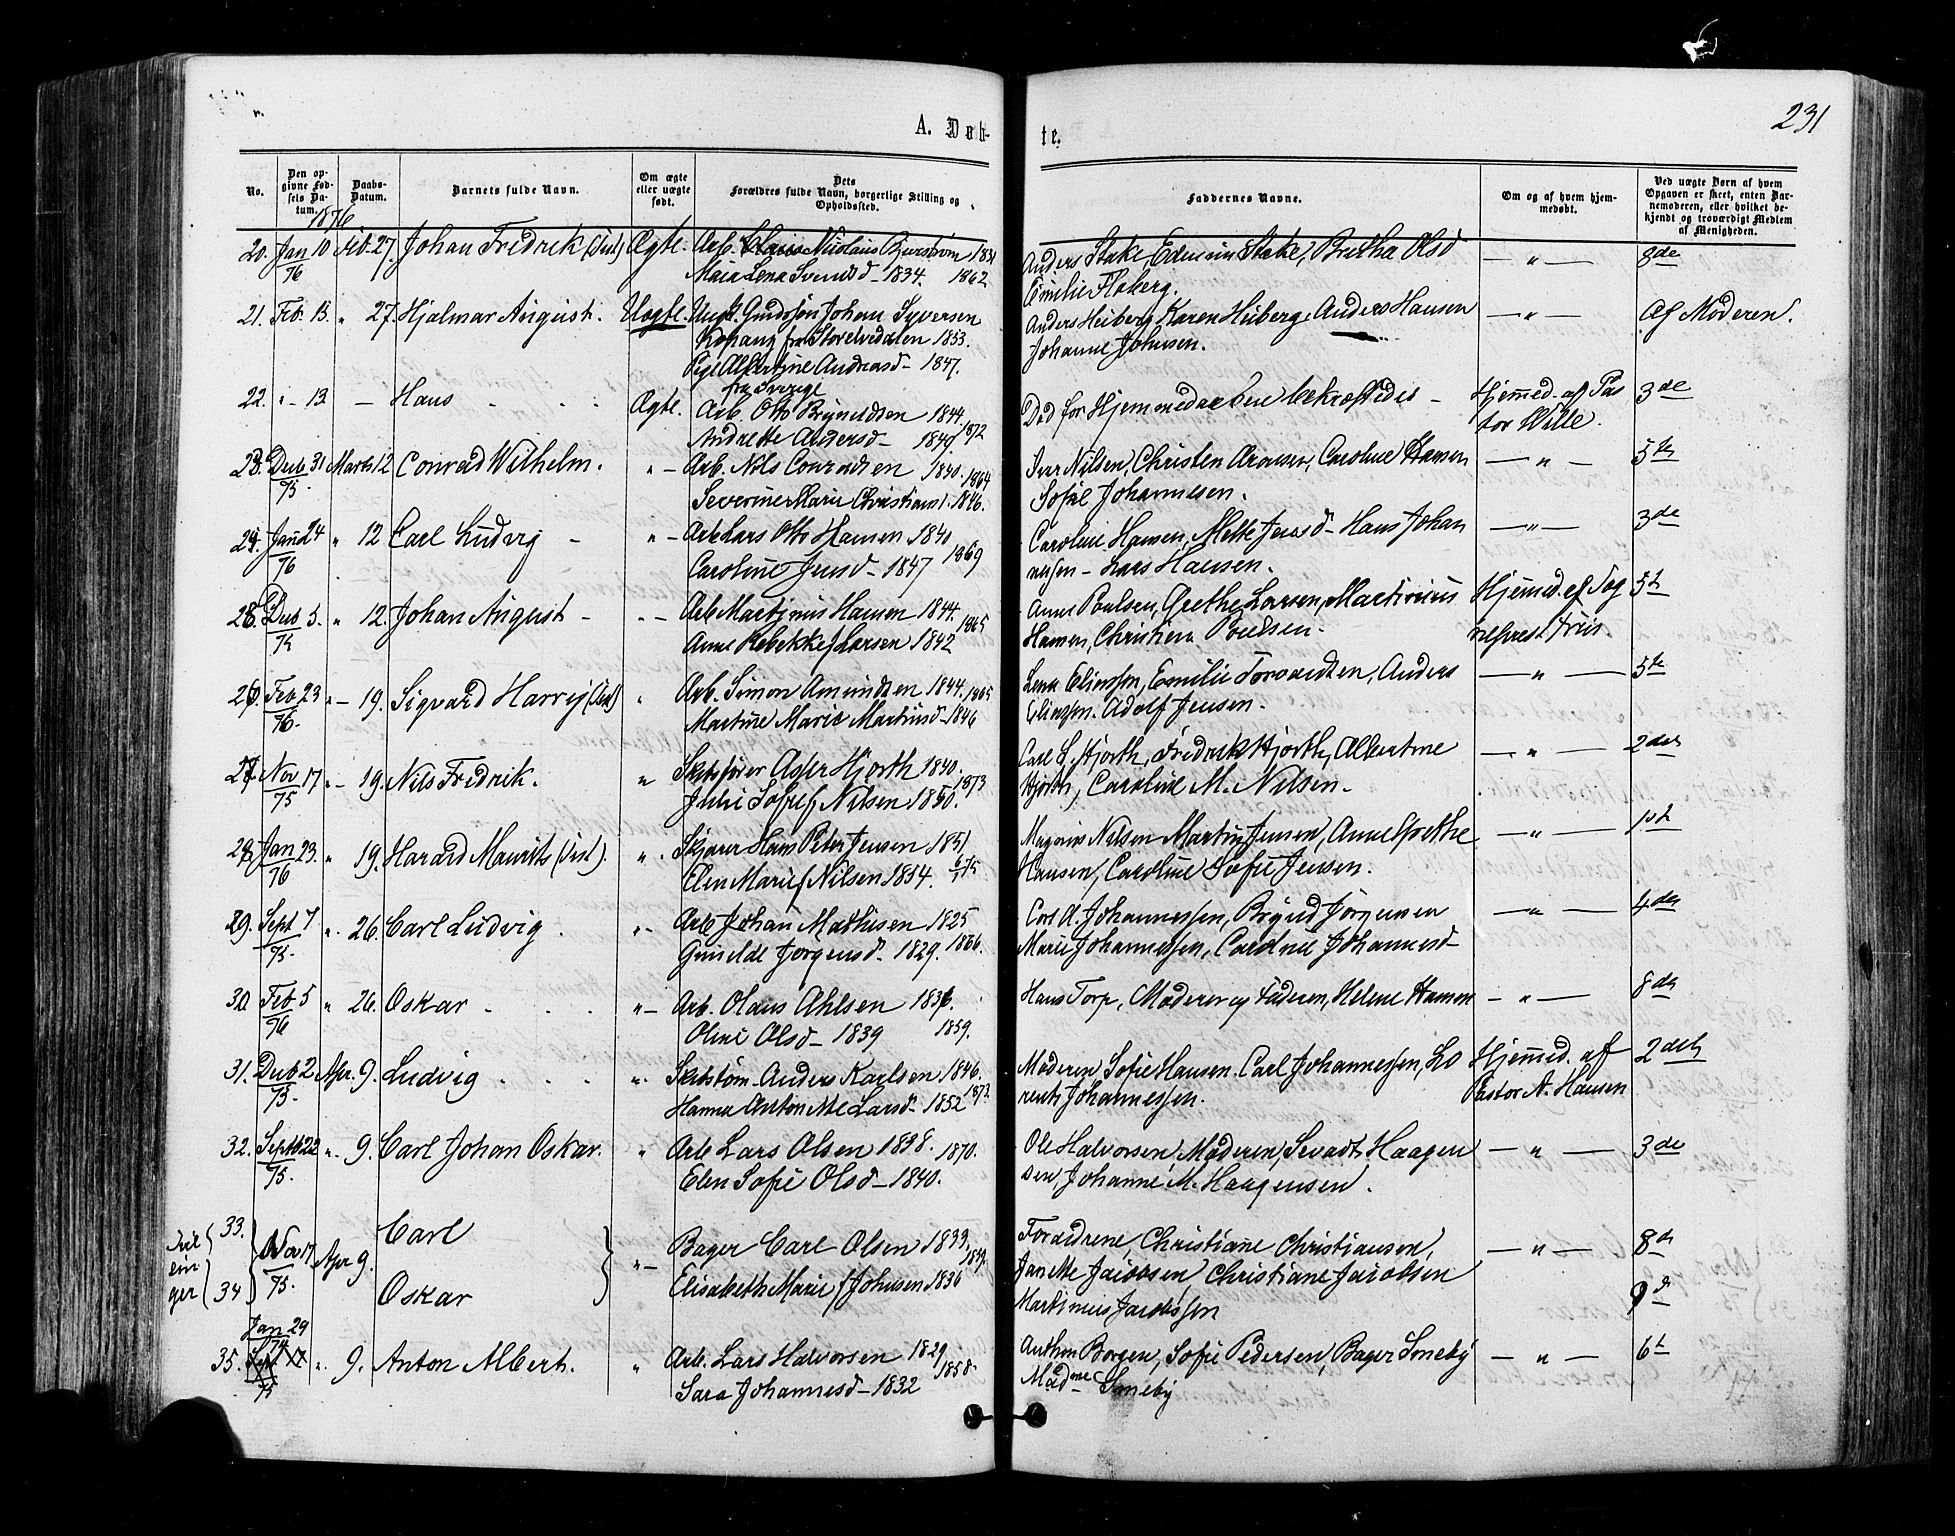 231
A. Døb-
te.
No.
Den op-
givne Fød-
sels Da-
tum.
Daabs-
Datum.
Barnets fulde Navn.
Om ægte
eller uægte
født.
Dets
Forældres fulde Navn, borgerlige Stilling og
Opholdssted.
Faddernes Navne.
Om og af hvem hjem-
medøbt.
Ved uægte Børn af hvem
Opgaven er skeet, enten Bar-
nemoderen, eller hvilket be-
kjendt og troværdigt Medlem
af Menigheden.
1876
20. Jan 10 Feb. 27. Johan Fredrik Ægte. Arb. Nicolaus 1831 Anders Stake, Stake, Bretha Olsd — " — 8de
76 Maia Lena Svendsd - 1834. 1862 Emilie Floberg.
21. Feb. 13. " 27. Hjalmar August. Uægte. Ungk. Johan Syversen Anders Heiberg, Karen Heiberg, Anders Hansen — " — Af Moderen.
Kopang fra Storelvedalen 1853. Johanne Johnsen.
Pige Albertine Andreasd - 1847.
fra Sverige
22. " - 13 — Hans Ægte. Arb. Otto 1844. Død før Hjemmedaaben bekræftedes - Hjemmed. af Pas 3de
Andrette Andersd - 1849 1872 tor Wille.
23. Decb. 31 Marts 12 Conrad Wilhelm. " - Arb. Nils Conradsen 1840. 1864 Iver Nilsen, Christen Aronsen, Caroline Hansen — " — 5te
75. Severine Marie Christians 1846. Sofie Johannesen.
24. Janu 24 " 12 Carl Ludvig - " - Arb. Lars Otto Hansen 1840 Caroline Hansen, Mette Jensd - Hans Johan — " — 3de
76 Caroline Jensd - 1847 1869 nesen - Lars Hansen.
25. Decb 5. " 12. Johan August - " - Arb. Martinus Hansen 1844. 1865 Anne Poulsen, Grethe Larsen, Martinius Hjemmed. af Sog 5t
Anne Rebekke f Larsen 1842 Hansen, Christian Poulsen. nepræst Friis.
26. Feb 23 " - 19. Sigvard Harry " Arb. Simon Amundsen 1844. 1865 Lena Eliassen, Emilie Torvaldsen, Anders — " — 5te
76 Martine Marie Martinsd - 1846 Eliassen. Adolf Jensen.
27. Nov 17 " - 19. Nils Fredrik. " Skibsfører Asper Hjorth 1840. Carl L. Hjorth, Fredrik Hjorth, Albertine — " — 2det
75 Julie Sofie f Nilsen 1850. 1873 Hjorth, Caroline M. Nilsen.
28. Jan 23. " 19. Harald Mauritz ". Hans Peter Jensen 1851 Nilsen Martin Jensen, Anne Grethe — " — 1st
76 Elen Marie f Nilsen 1854. Hansen, Caroline Sofie Jensen.
29. Sept 7 ". 26. Carl Ludvig. " - Arb Johan Mathisen 1825 Carl A. Johannessen, Jørgensen — " — 4de
75. Jørgensd - 1829. 1866. Marie Johannessen, Caroline Johannesd -
30. Feb. 5 " 26. Oskar. " - Arb. Olaus Ahlsen 1836. Hans Torp, Moderen og Faderen, Helene Hansen — " — 8de
76 Oline Olsd - 1839 1859.
31. Decb 2 Apr. 9. Ludvig. " Skibstøm. Anders Karlsen 1846. Moderen Sofie Hansen. Carl Johannessen, Lo Hjemmed. af 2det
75. Hanna Antonette Larsd - 1852 1872 rents Johannessen. Pastor A. Hansen
32. Septb 22 " - 9. Carl Johan Oskar. " Arb Lars Olsen 1838. 1870. Ole Halvorsen, Moderen, Haagen — " — 3de
75. Elen Sofie Olsd - 1840. sen, Johanne M. Haagensen.
33. Carl
Nov 17 Apr 9. " - Bager Carl Olsen 1833. 1859. Forældrene, Christiane Christiansen, — " — 8de
75. Elisabeth Marie f Johnsen 1836 Janette Jacobsen Christiane Jacobsen
34 Oskar Martinius Jacobssen 9d
Jan 29
74
35. 75 " 9. Anton Albert. " Arb. Lars Halvorsen 1829 1858. Anthon Borgen, Sofie Pedersen, Bager Smeby — " — 6t
Sara Johannesd - 1832 Madme Smeby